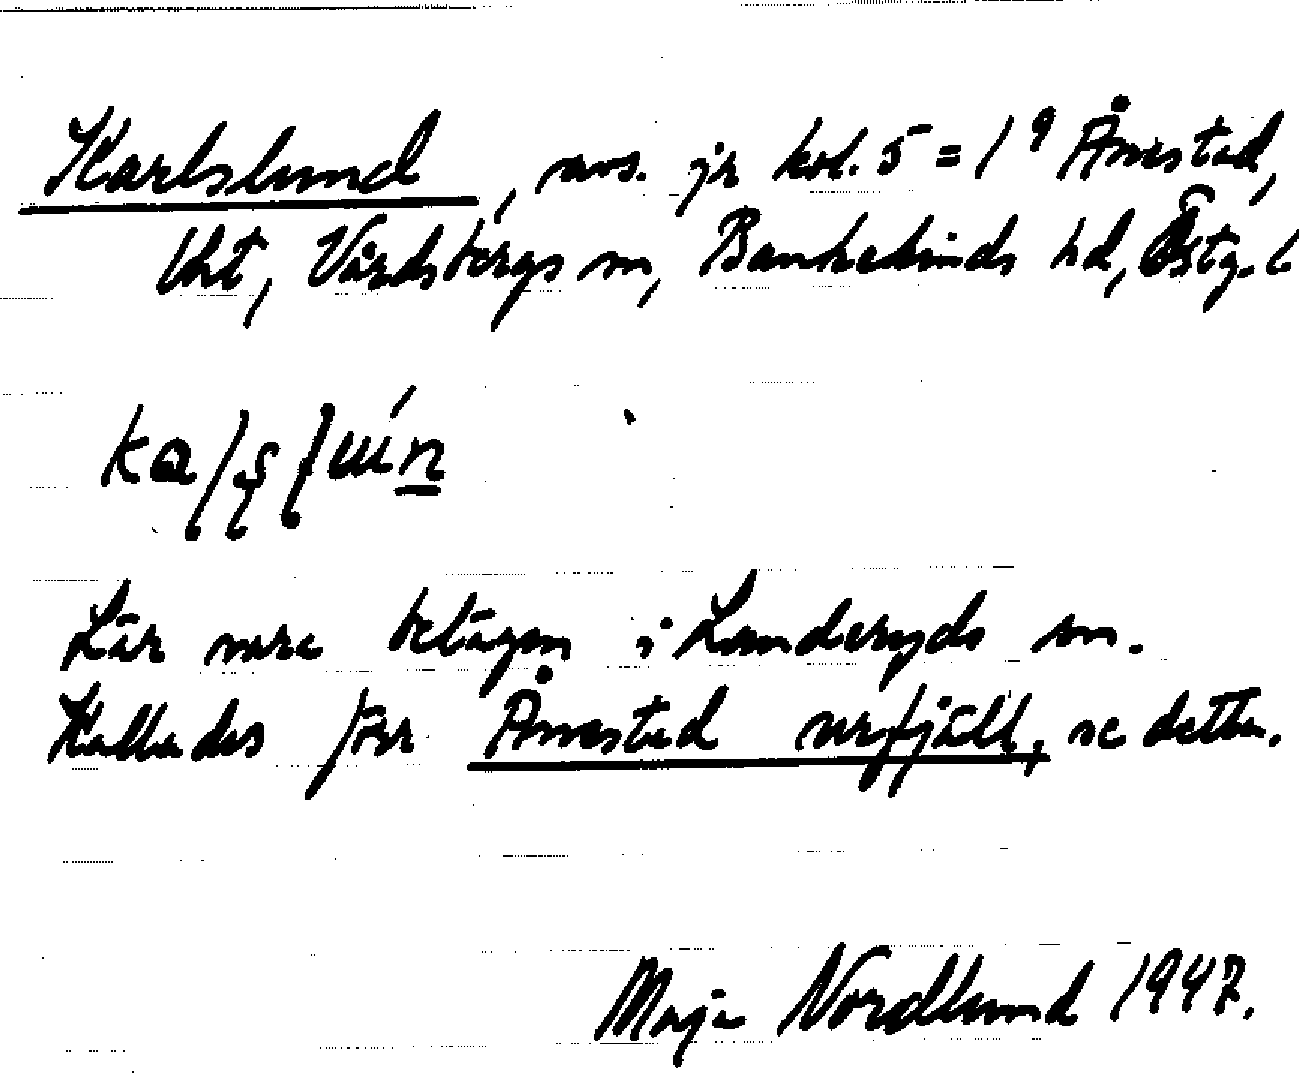 Karlslund, avs. jr kol. 5 = 1⁹ Ånestad,
Uht, Vårdsbergs sn, Bankekinds hd, Östg. l
Lär vara belägen i Landeryds sn.
Kallades förr Ånestad urfjäll, se detta.
Maja Nordlund 1947.